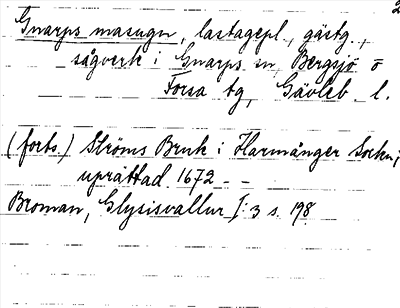 2
Gnarps masugn, lastagepl., gästg.,
sågverk i Gnarps sn, Bergsjö o
Forsa tg, Gävleb. l.
(forts.) Ströms Bruk i Harmånger Sockn;
uprättad 1672 - -
Broman, Glysisvallur I: 3 s. 198.